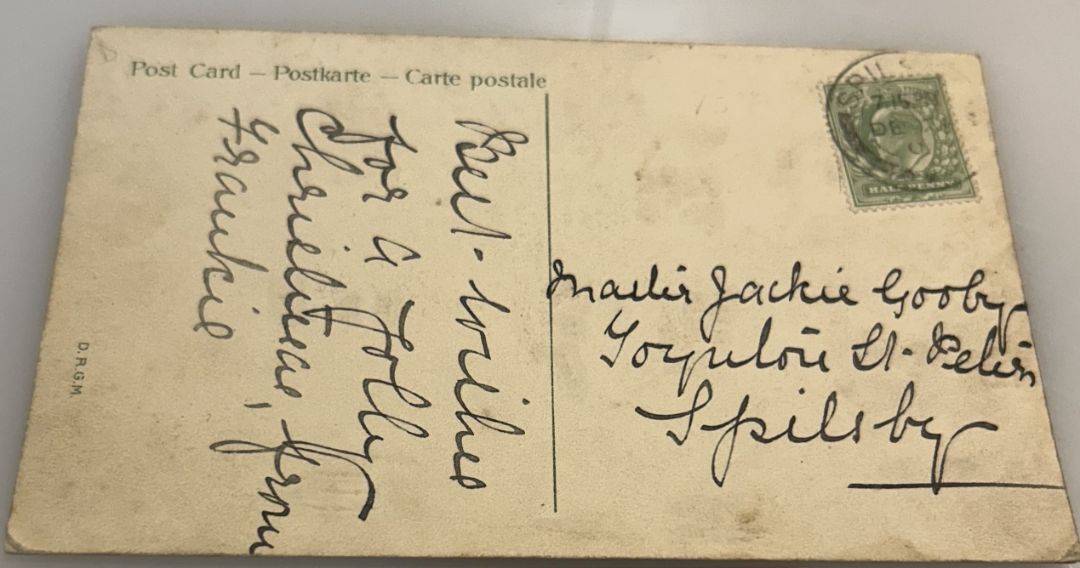 Post Card – Postkarte – Carte postale
Best wishes
for a Jolly
Christmas, from
Frankie
D.R.G.M.
SPILS
7.15
DE
HALFPENNY
Master Jackie Gooby
Toynton St. Peters
Spilsby